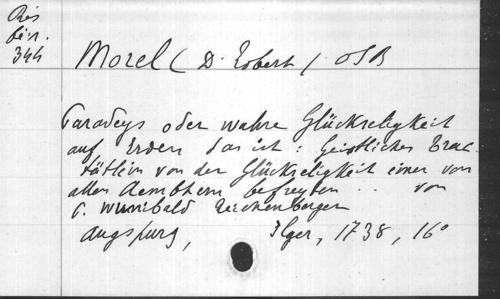 Res
lein.
344
Morel ( D. Robert ) OSB
Paradeys oder wahre Glückseligkeit
auf Erden das ist: Geistliches Trac-
tätlein von der Glückseligkeit einer von
allen Aembtern befreyten .. von
P. Wunibald Reichenberger
Augspurg, Ilger, 1738, 16°